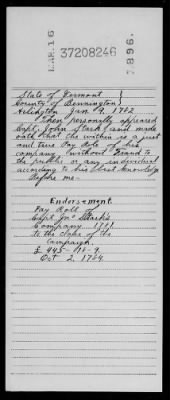 MAR. 16
37208246
7896.
State of Vermont }
County of Bennington }
Arlington Jan 9, 1782
Then personally appeared
Capt. John Stark and made
oath that the within is a just
and true Pay Role of his
Company, without Fraud to
the public or any individual
according to his best knowledge
Before me—
Endorsement.
Pay Roll of
Capt Jno Stark's
Company. 1781
to the close of the
Campaign.
£ 445-14-9.
Oct 2, 1784.